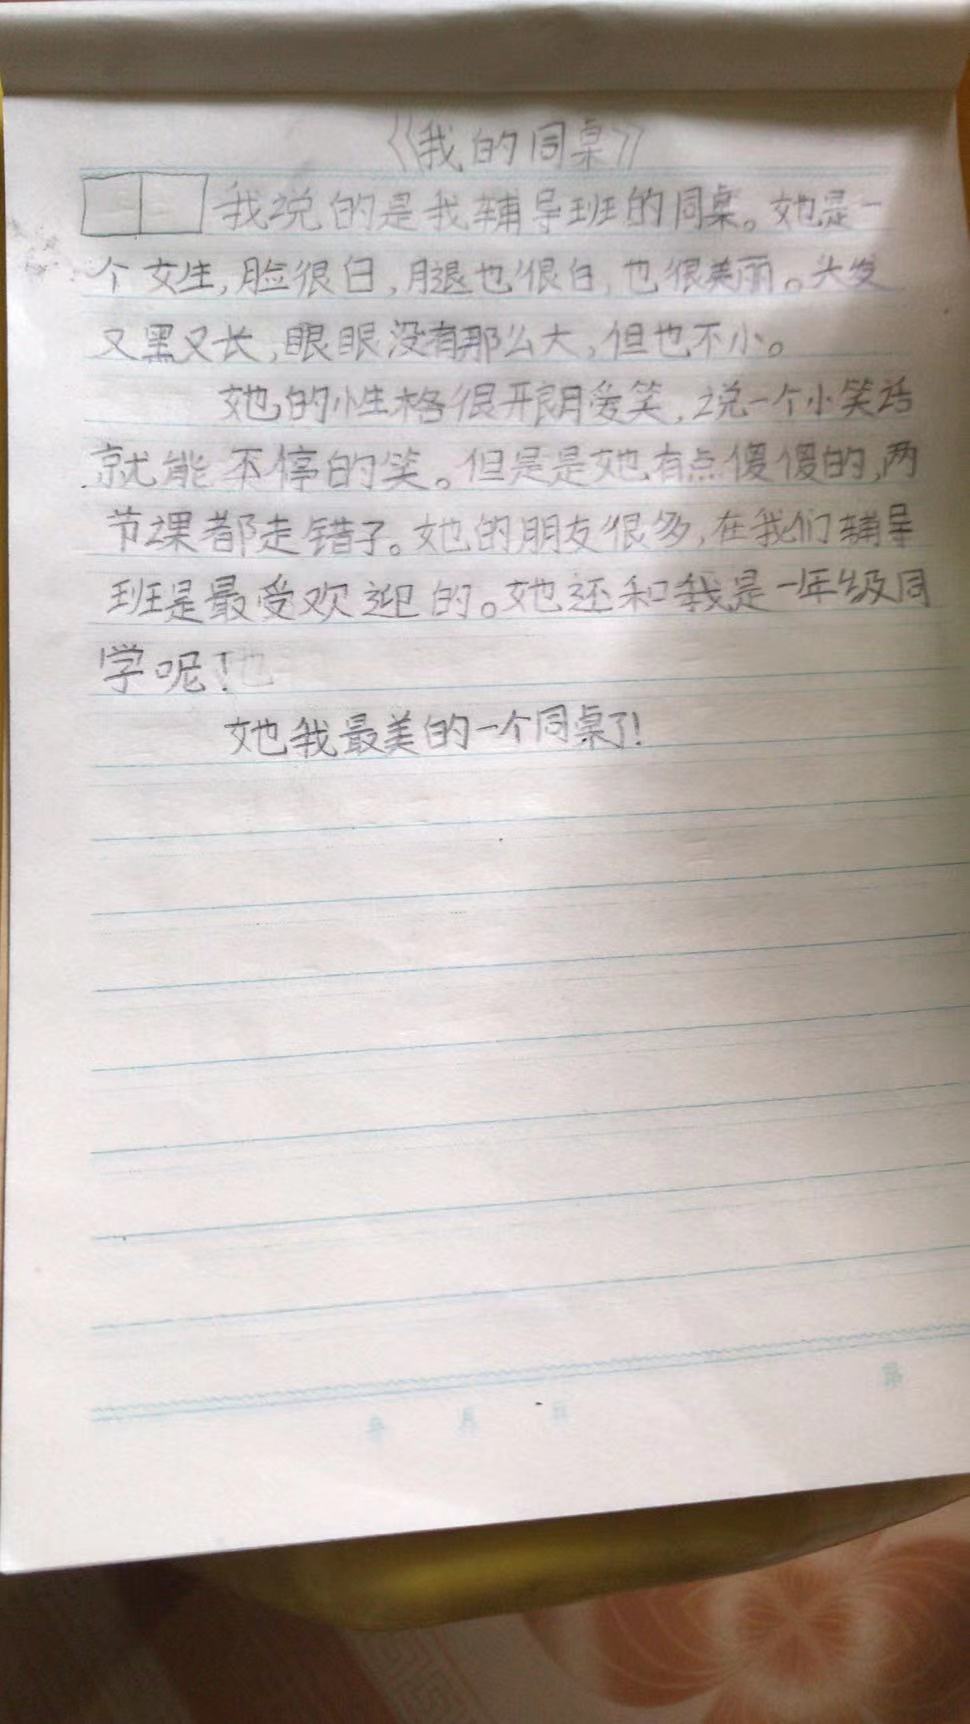 《我的同桌》
我说的是我辅导班的同桌。她是一
个女生,脸很白,腿也很白,也很美丽。头发
又黑又长,眼眼没有那么大,但也不小。
她的性格很开朗爱笑,说一个小笑话
就能不停的笑。但是是她有点傻傻的,两
节课都走错了。她的朋友很多,在我们辅导
班是最受欢迎的。她还和我是一年级同
学呢!
她我最美的一个同桌了!
年 月 日
第